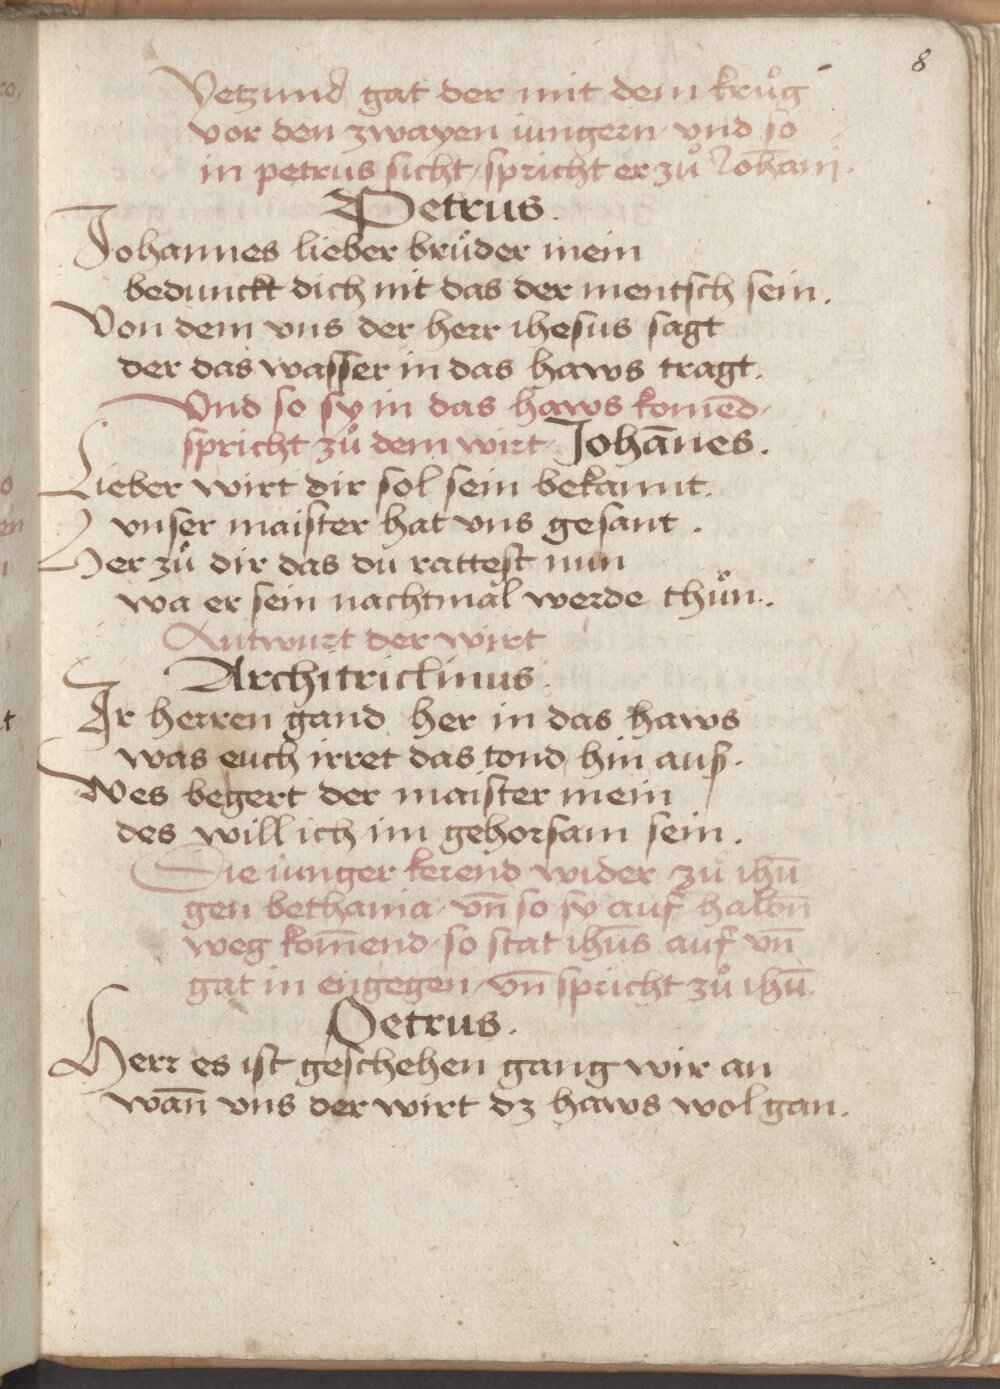 8
Yetzund gat der mit dem krůg
vor den zwayen iungern vnd so
in petrus sicht / spricht er zů Johānj.
Petrus.
Johannes lieber brůder mein
bedunckt dich nit das der mentsch sein.
Von dem vns der herr ihesus sagt
der das wasser in das haws tragt.
Vnd so sy in das haws komēd /
spricht zů dem wirt / Johānes.
Lieber wirt dir sol sein bekannt.
vnser maister hat vns gesant.
Her zů dir das du rattest nun
wa er sein nachtmal werde thůn.
Antwurt der wirt
Architriclinus.
Ir herren gand her in das haws
was euch irret das tond hin aus.
Wes begert der maister mein
des will ich im gehorsam sein.
Die iunger kerend wider zů ihū
gen bethania. vn̄ so sy auf halbn̄
weg kom̄end / so stat ihūs auf vn̄
gat in engegen / vn̄ spricht zů ihū.
Petrus.
Herr es ist geschehen gang wir an
wan̄ vns der wirt dz haws wol gan.